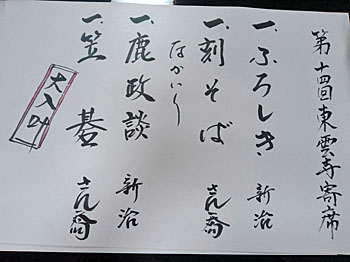 第十四回東雲寺寄席
一、ふろしき 新治
一、刻そば さん喬
なかいり
一、鹿政談 新治
一、笠碁 さん喬
大入叶